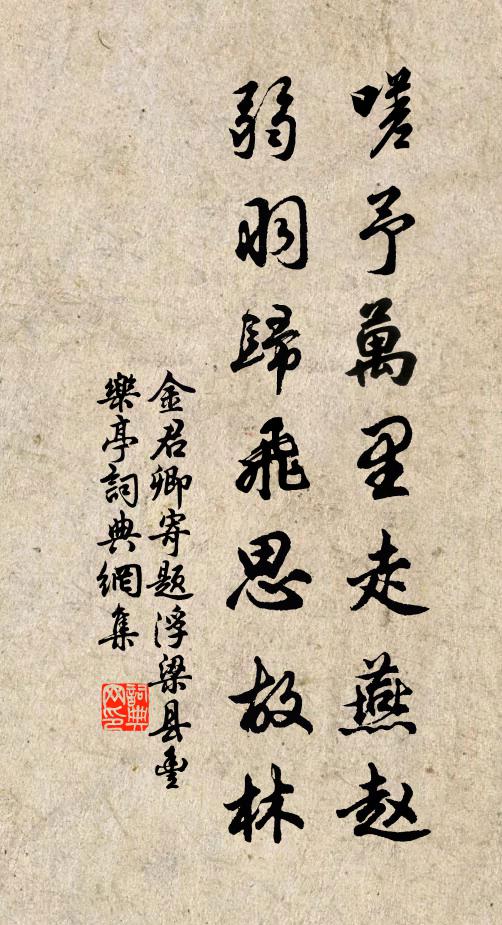 嗟予萬里走燕赵
弱羽歸飛思故林
金君卿寄题浮梁县豊
樂亭詞典網集
詞典网印